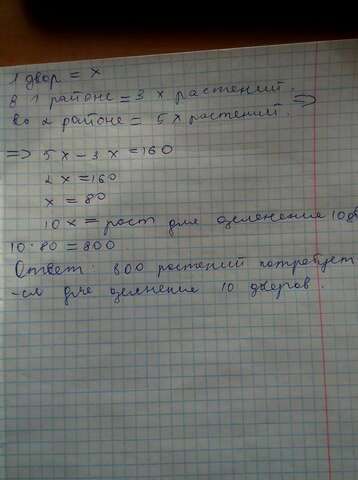 1 двор = x
в 1 районе = 3 x растений.
во 2 районе = 5 x растений. =>
=> 5 x - 3 x = 160
2 x = 160
x = 80
10 x = раст для озеленения 10 дв
10 · 80 = 800
Ответ: 800 растений потребует
-ся для озелнения 10 дворов.